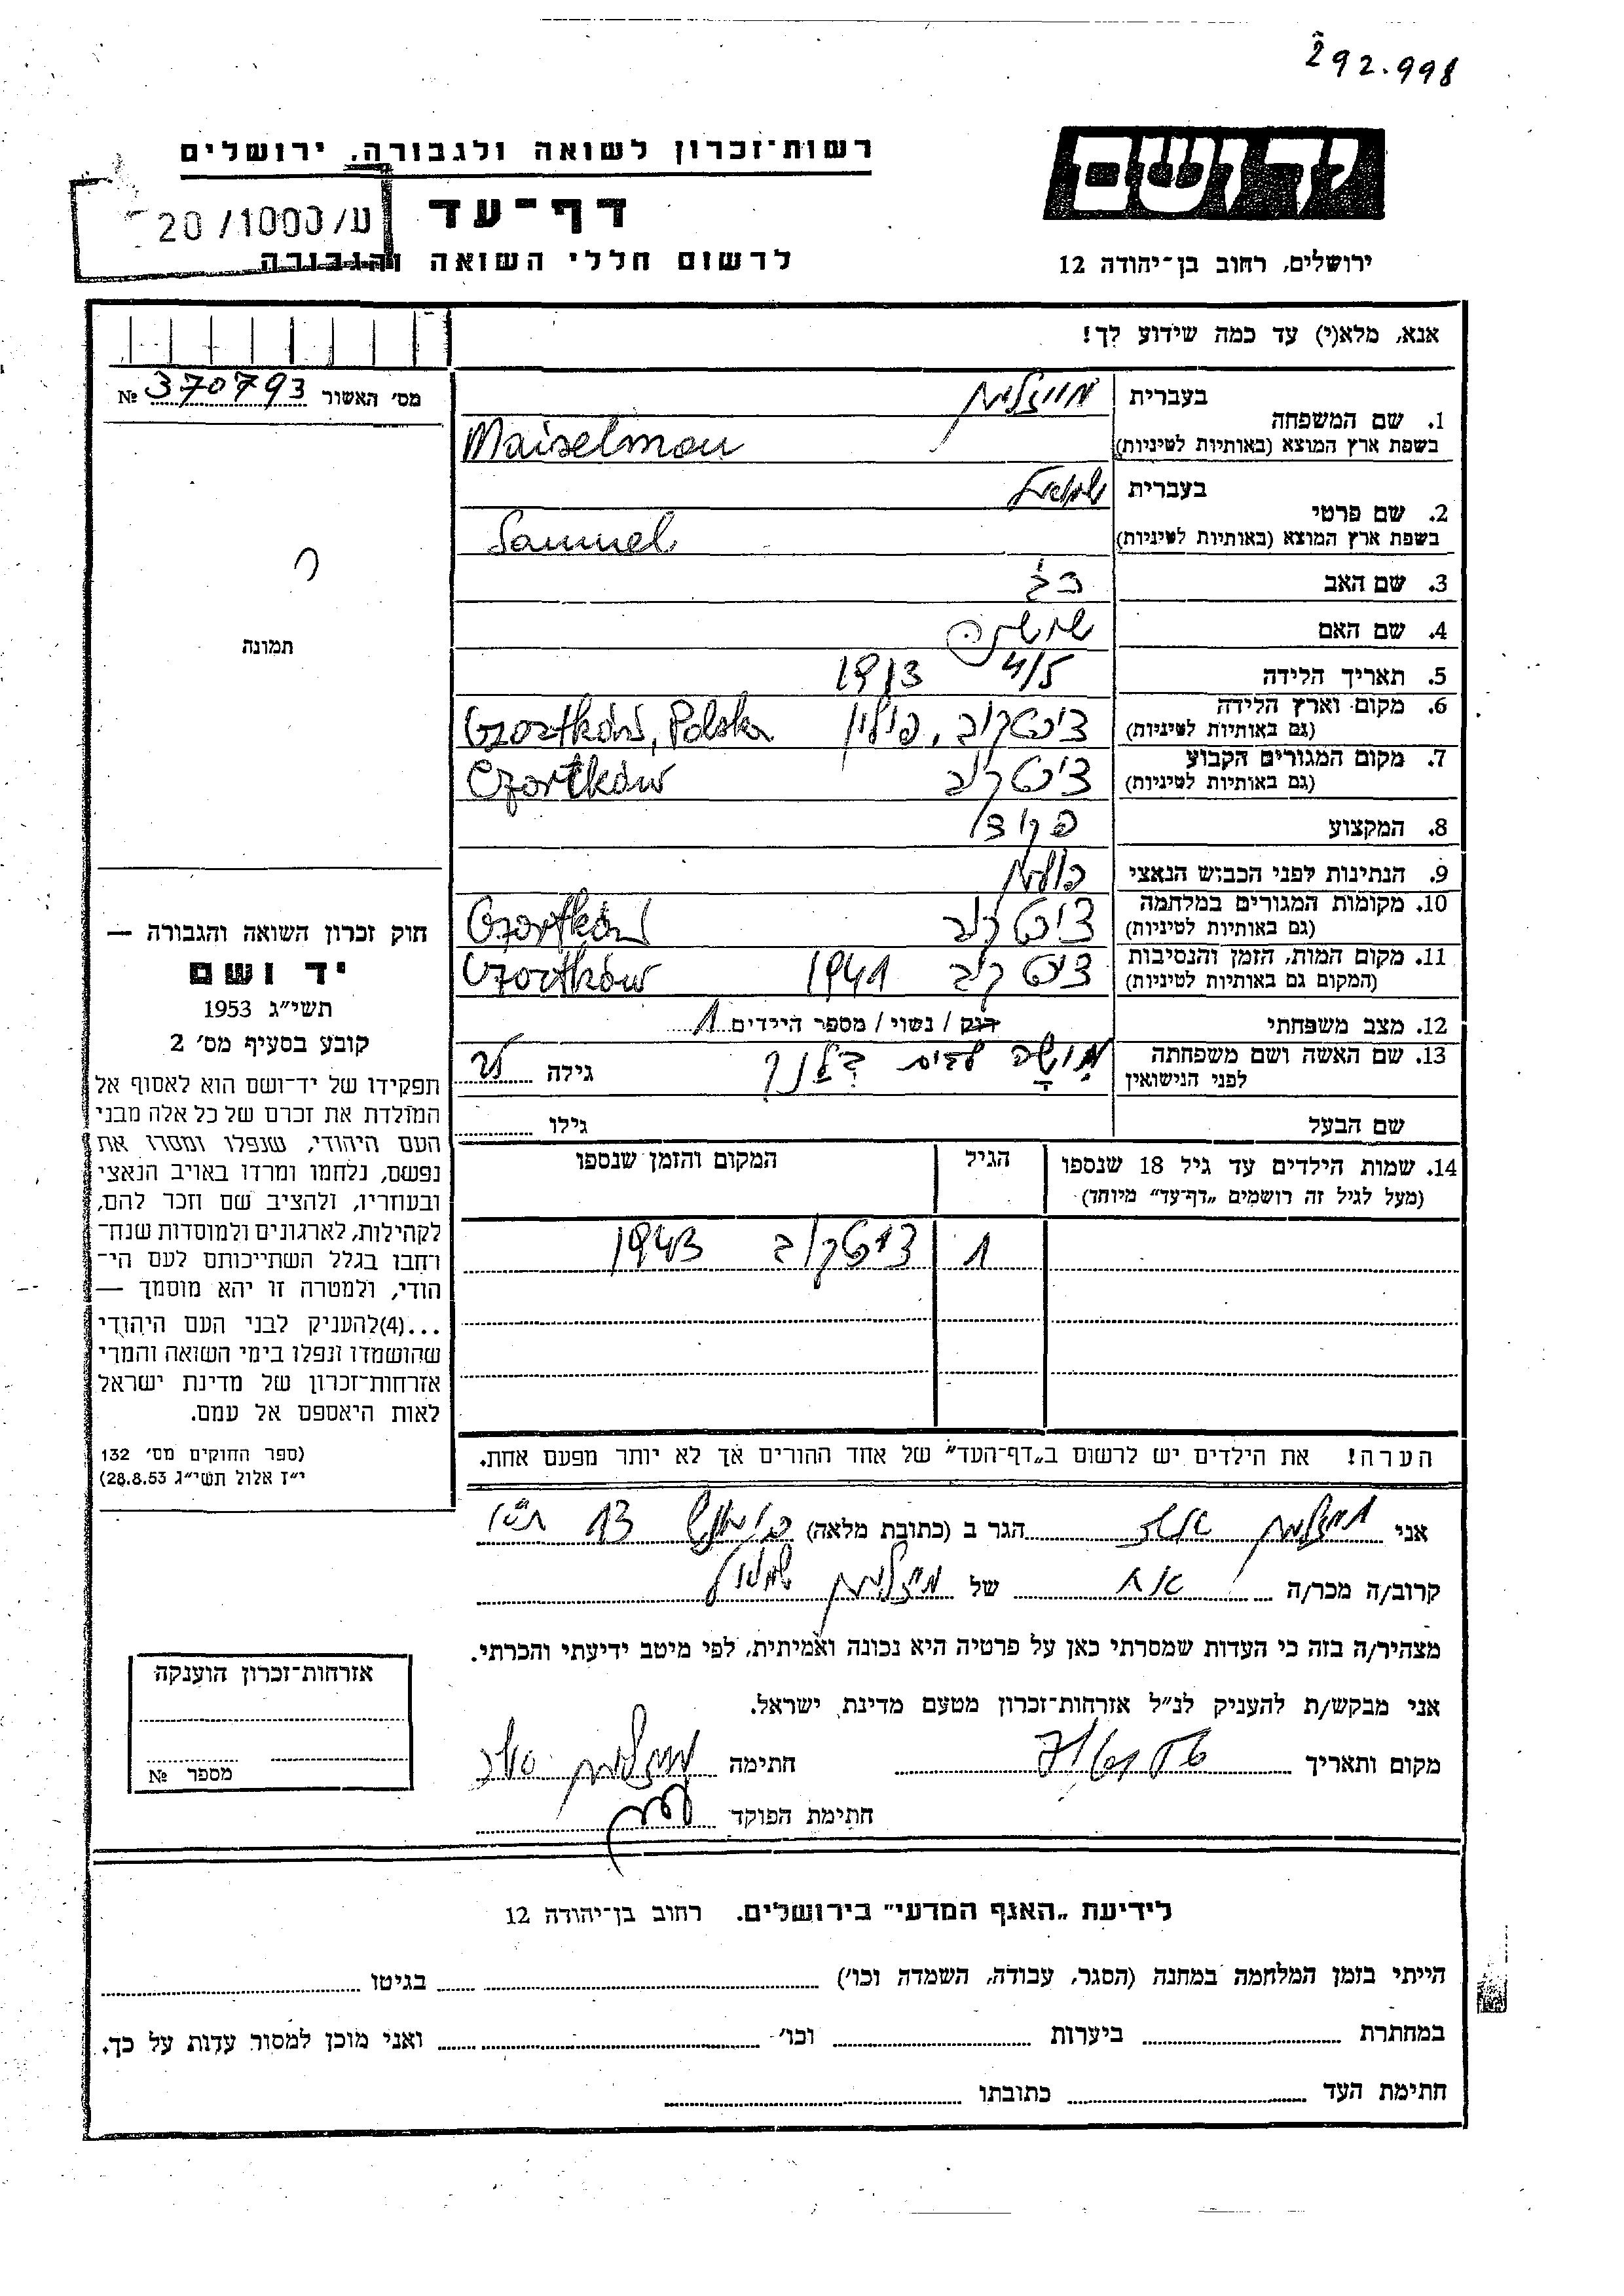 292.998
רשות־זכרון לשואה ולגבורה, ירושלים
יד ושם
20/1000/ע
דף־עד
לרשום חללי השואה והגבורה
ירושלים, רחוב בן־יהודה 12
אנא, מלא(י) עד כמה שידוע לך!
מס׳ האשור № 370793
1. שם המשפחה
בעברית
בשפת ארץ המוצא (באותיות לטיניות) Maiselman
2. שם פרטי
בעברית שמואל
בשפת ארץ המוצא (באותיות לטיניות) Samuel
3. שם האב
4. שם האם
5. תאריך הלידה 4/5 1913
6. מקום וארץ הלידה
(גם באותיות לטיניות) פולין Czortków, Polska
7. מקום המגורים הקבוע
(גם באותיות לטיניות) Czortków
8. המקצוע
9. הנתינות לפני הכבוש הנאצי פולנית
10. מקומות המגורים במלחמה
(גם באותיות לטיניות) Czortków
11. מקום המות, הזמן והנסיבות
(המקום גם באותיות לטיניות) 1941 Czortków
12. מצב משפחתי רוק / נשוי / מספר הילדים 1
13. שם האשה ושם משפחתה
לפני הנישואין
לבית גילה
שם הבעל גילו
14. שמות הילדים עד גיל 18 שנספו
(מעל לגיל זה רושמים „דף־עד״ מיוחד)
הגיל
המקום והזמן שנספו
1 1943
הערה! את הילדים יש לרשום ב„דף־העד״ של אחד ההורים אך לא יותר מפעם אחת.
תמונה
חוק זכרון השואה והגבורה —
יד ושם
תשי״ג 1953
קובע בסעיף מס׳ 2
תפקידו של יד־ושם הוא לאסוף אל
המולדת את זכרם של כל אלה מבני
העם היהודי, שנפלו ומסרו את
נפשם, נלחמו ומרדו באויב הנאצי
ובעוזריו, ולהציב שם וזכר להם,
לקהילות, לארגונים ולמוסדות שנח־
רחבו בגלל השתייכותם לעם הי־
הודי, ולמטרה זו יהא מוסמך —
...(4)להעניק לבני העם היהודי
שהושמדו ונפלו בימי השואה והמרי
אזרחות־זכרון של מדינת ישראל
לאות היאספם אל עמם.
(ספר החוקים מס׳ 132
י״ז אלול תשי״ג 28.8.53)
אני הגר ב (כתובת מלאה) 13
קרוב/ה מכר/ה אח של שמואל
מצהיר/ה בזה כי העדות שמסרתי כאן על פרטיה היא נכונה ואמיתית, לפי מיטב ידיעתי והכרתי.
אני מבקש/ת להעניק לנ״ל אזרחות־זכרון מטעם מדינת ישראל.
מקום ותאריך חתימה
חתימת הפוקד
אזרחות־זכרון הוענקה
מספר №
לידיעת „האגף המדעי״ בירושלים. רחוב בן־יהודה 12
הייתי בזמן המלחמה במחנה (הסגר, עבודה, השמדה וכו׳) בגיטו
במחתרת ביערות וכו׳ ואני מוכן למסור עדות על כך.
חתימת העד כתובתו